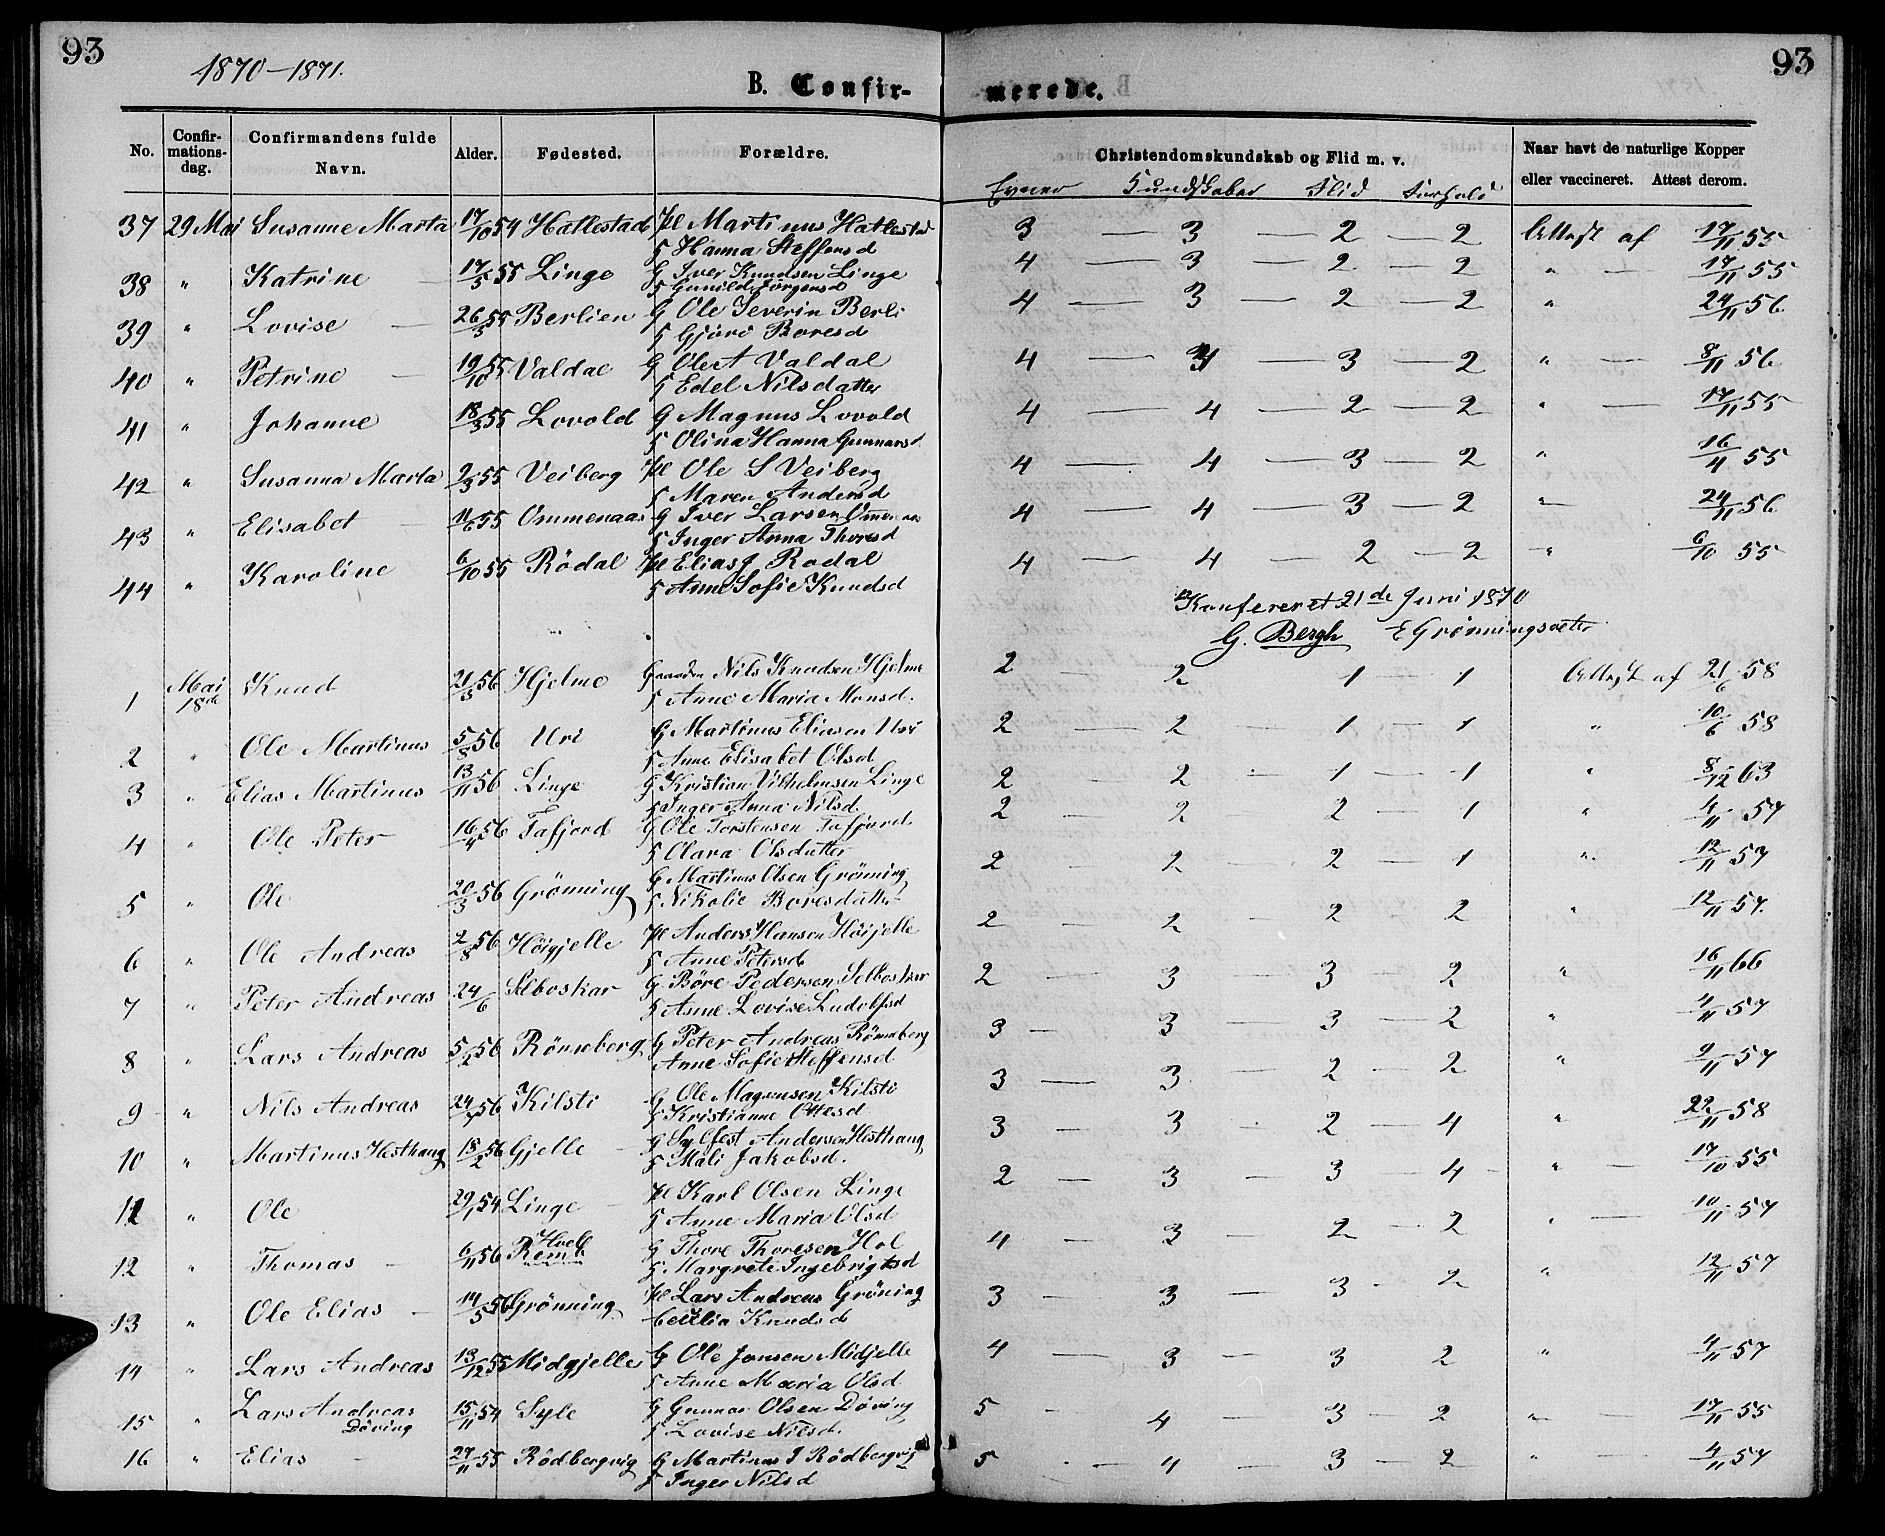 93
1870–1871.
B. Confir-
merede.
93
No. Confir-mations-dag. Confirmandens fulde Navn. Alder. Fødested. Forældre. Christendomskundskab og Flid m. v. Naar havt de naturlige Kopper eller vaccineret. Attest derom.
Evner Kundskaber Flid Forhold
37 29 Mai Susanne Marta 17/10 54 Hatlestad Pl Martinus Hatlestad 3 — 3 — 2 — 2 Attest af 17/11 55
5 Hanna Steffensd
38 " Katrine 17/5 55 Linge G Iver Knudsen Linge 4 — 3 — 2 — 2 " — 17/11 55
5 Gunild Jörgensd
39 " Lovise — 26/5 55 Berlien G Ole Severin Berli 4 — 3 — 2 — 2 " 24/11 56
5 Gjöri Boresd
40 " Petrine — 19/10 55 Valdal G Ole A Valdal 4 — 4 — 3 — 2 " — 8/11 56
5 Edel Nilsdatter
41 " Johanne 18/3 55 Lovold G Magnus Lovold 4 — 4 — 2 — 2 " — 17/11 55
5 Olina Hanna Gunnarsd
42 " Susanna Marta 2/3 55 Veiberg Pl Ole S Veiberg 4 — 4 — 3 — 2 " 16/4 55
5 Maren Andersd
43 " Elisabet 11/6 55 Ommenaas G Iver Larsen 4 — 4 — 3 — 2 " 24/11 56
5 Inger Anna Thoresd
44 " Karoline 6/10 55 Rödal Pl Elias J Rodal 4 — 4 — 2 — 2 " 6/10 55
5 Anne Sofie Knudsd
Konfereret 21de Juni 1870
G. Bergh E Grönningsæter
1 Mai 18de Knud 21/5 56 Hjelme Gaarden Nils Knudsen Hjelme 2 — 2 — 1 — 1 Attest af 21/6 58
5 Anne Maria Monsd.
2 " Ole Martinus 5/8 56 Uri G Martinus Eliasen Uri 2 — 2 — 1 — 1 " 10/6 58
5 Anne Elisabet Olsd
3 " Elias Martinus 13/11 56 Linge G Kristian Vilhelmsen Linge 2 — 2 — 1 — 1 " 8/12 63
5 Inger Anna Nilsd.
4 " Ole Peter 16/4 56 Tafjord G Ole Torstensen Tafjord 2 — 2 — 2 — 1 " 4/11 57
5 Olava Olsdatter
5 " Ole 20/3 56 Grönning G Martinus Olsen Gröning 2 — 2 — 2 — 1 " 12/11 57
5 Nikolie Boresdatter
6 " Ole Andreas 2/8 56 Höigjelle Pl Anders Hansen Höijelle 2 — 2 — 2 2 " 12/11 57.
5 Anne Petersd
7 " Peter Andreas 24/6 Selboskar G Böre Pedersen Selboskar 2 — 3 — 3 — 2 " 16/11 66
5 Anne Lovise Ludolfsd
8 " Lars Andreas 5/2 56 Rönneberg G Peter Andreas Rönneberg 3 — 3 — 3 — 2 " 4/11 57
Anne Sofie Steffensd
9 " Nils Andreas 24/7 56 Kilsti G Ole Magnusen Kilsti 3 — 3 — 2 — 2 " 9/11 57
5 Kristianne Ottesd.
10 " Martinus Hesthaug 13/2 56 Gjelle G Sylfest Andersen Hesthaug 3 — 3 — 2 — 4 " 22/11 58
5 Mali Jakobsd.
11 " Ole 29/1 54 Linge Pl Karl Olsen Linge 2 — 3 — 3 — 4 " — 17/10 55
5 Anne Maria Olsd.
12 " Thomas — 6/11 56 Hoel G Thore Thoresen Hol 4 — 3 — 2 — 2 " — 10/11 57
5 Margrete Ingebrigtsd
13 " Ole Elias — 14/5 56 Grönning Pl Lars Andreas Gröning 3 — 3 — 3 — 2 " 12/11 57
Cecilia Knudsd
14 " Lars Andreas 13/12 55 Midgjelle G Ole Jonsen Midjelle 4 — 3 — 3 2 " 4/11 57
5 Anne Maria Olsd
15 " Lars Andreas Döving 15/11 54 Syle G Gunnar Olsen Döving 5 — 4 — 3 — 2 " 17/11 55
5 Lovise Nilsd.
16 " Elias — 27/11 55 Rödbergvig G Martinus J Rödbergvig 5 — 4 — 3 — 2 " — 4/11 57
5 Inger Nilsd